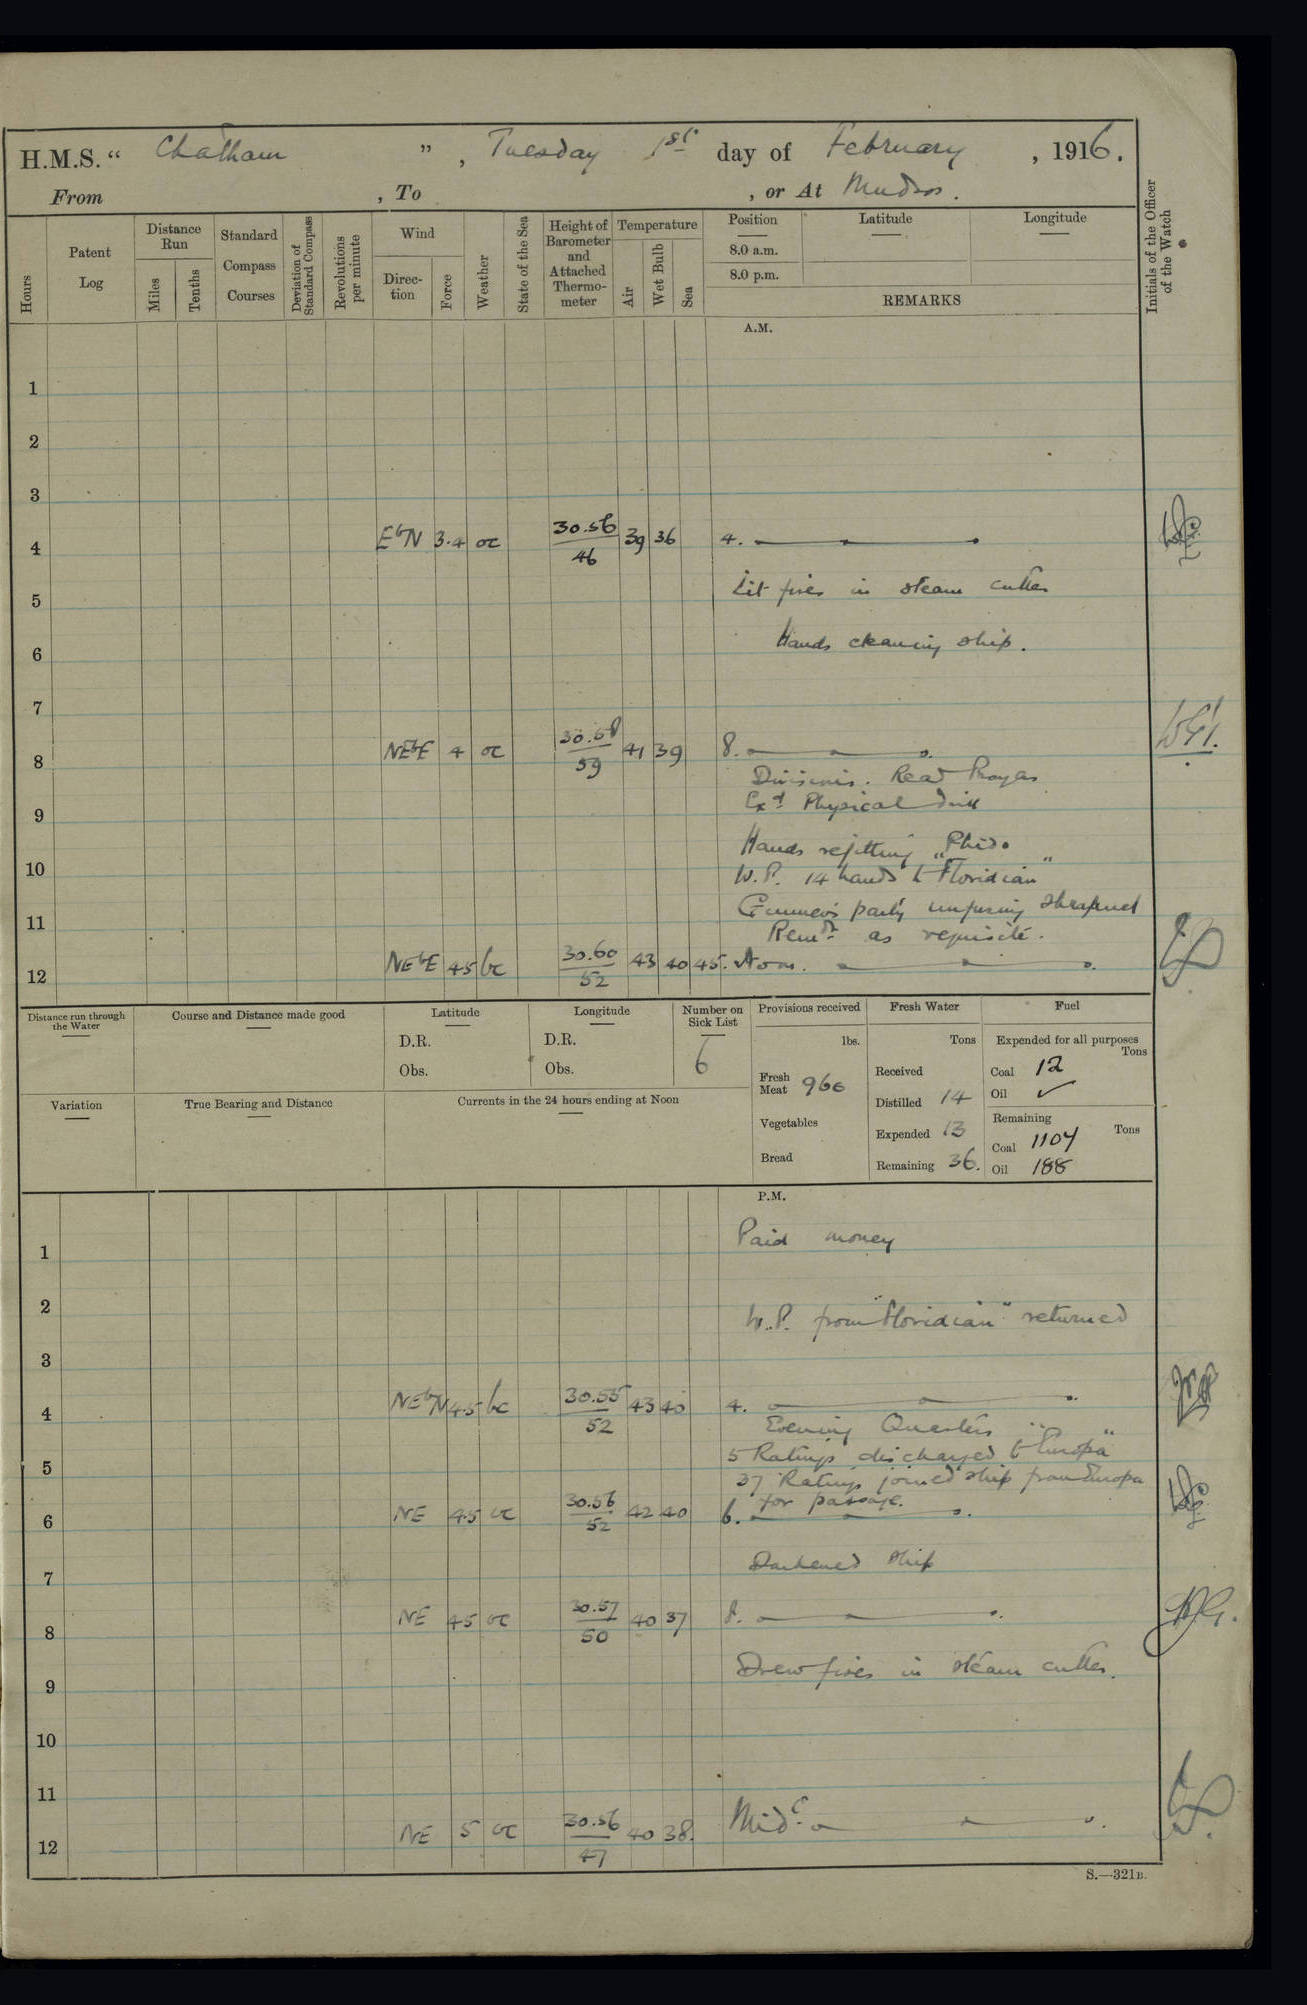 H.M.S. “ Chatham ” , Tuesday 1st day of February , 1916.
From , To , or At Mudros.
Hours
Patent Log
Distance Run
Miles
Tenths
Standard Compass Courses
Deviation of Standard Compass
Revolutions per minute
Wind
Direction
Force
Weather
State of the Sea
Height of Barometer and Attached Thermometer
Temperature
Air
Wet Bulb
Sea
Position
8.0 a.m.
8.0 p.m.
Latitude
Longitude
REMARKS
Initials of the Officer of the Watch
A.M.
1
2
3
4 EbN 3.4 oc 30.56 46 39 36 4.
Lit fires in steam cutter
5
Hands cleaning ship.
6
7
8 NEbE 4 oc 30.58 59 41 39 8.
Divisions. Read Prayers
Exd Physical drill
9
Hands refitting
10 W.P. 14 hands to "Floridian"
Gunner's party unfusing shrapnel
11 Remdr as requisite.
12 NEbE 4.5 bc 30.60 52 43 40 45. Noon.
Distance run through the Water
Course and Distance made good
Latitude
D.R.
Obs.
Longitude
D.R.
Obs.
Number on Sick List
6
Provisions received
lbs.
Fresh Meat 960
Vegetables
Bread
Fresh Water
Tons
Received
Distilled 14
Expended 13
Remaining 36.
Fuel
Expended for all purposes
Tons
Coal 12
Oil ✓
Remaining
Tons
Coal 1104
Oil 188
Variation
True Bearing and Distance
Currents in the 24 hours ending at Noon
P.M.
Paid money
1
2 W.P. from "Floridian" returned
3
4 NEbN 4.5 bc 30.55 52 43 40 4.
Evening Quarters
5 Ratings discharged to "Europa"
5
37 Ratings joined ship from Europa
for passage.
6 NE 4.5 oc 30.56 52 42 40 6.
Darkened ship
7
8 NE 4.5 oc 30.57 50 40 37 8.
Drew fires in steam cutter.
9
10
11
12 NE 5 oc 30.56 47 40 38. Midt.
S.—321B.